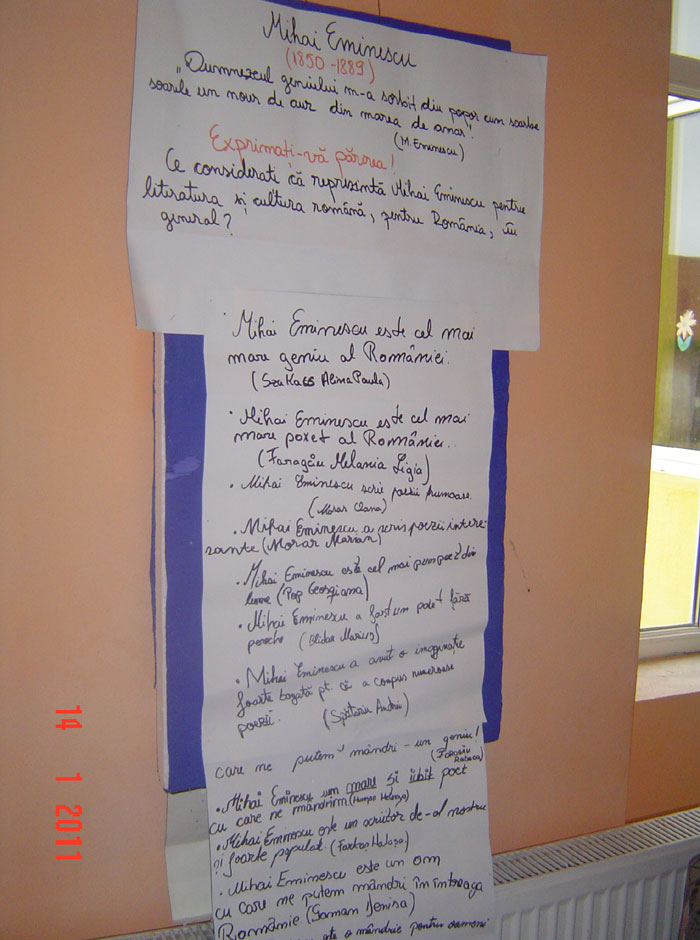 Mihai Eminescu
(1850-1889)
„Dumnezeul geniului m-a sorbit din popor cum soarbe
soarele un nour de aur din marea de amar".
(M. Eminescu)
Exprimați-vă părerea!
Ce considerați că reprezintă Mihai Eminescu pentru
literatura și cultura română, pentru România, în
general?
Mihai Eminescu este cel mai
mare geniu al României.
(Szakacs Alina Paula)
• Mihai Eminescu este cel mai
mare poxet al României.
(Faragău Melania Ligia)
• Mihai Eminescu scrie poezii frumoase.
(Morar Oana)
• Mihai Eminescu a scris poezii intere-
sante (Morar Marian)
• Mihai Eminescu este cel mai bun poet din
lume (Pop Georgiana)
• Mihai Eminescu a fost un poet fără
pereche (Blidar Marius)
• Mihai Eminescu a avut o imaginație
foarte bogată pt. că a compus numeroase
poezii. (Spătariu Andrei)
care ne putem mândri - un geniu!
(Faragău Rebeca)
• Mihai Eminescu un mare și iubit poet
cu care ne mândrim
• Mihai Eminescu este un scriitor de-al nostru
și foarte popular.
• Mihai Eminescu este un om
cu care ne putem mândri în întreaga
Românie (Gaman Denisa)
este o mândrie pentru oameni
14 1 2011